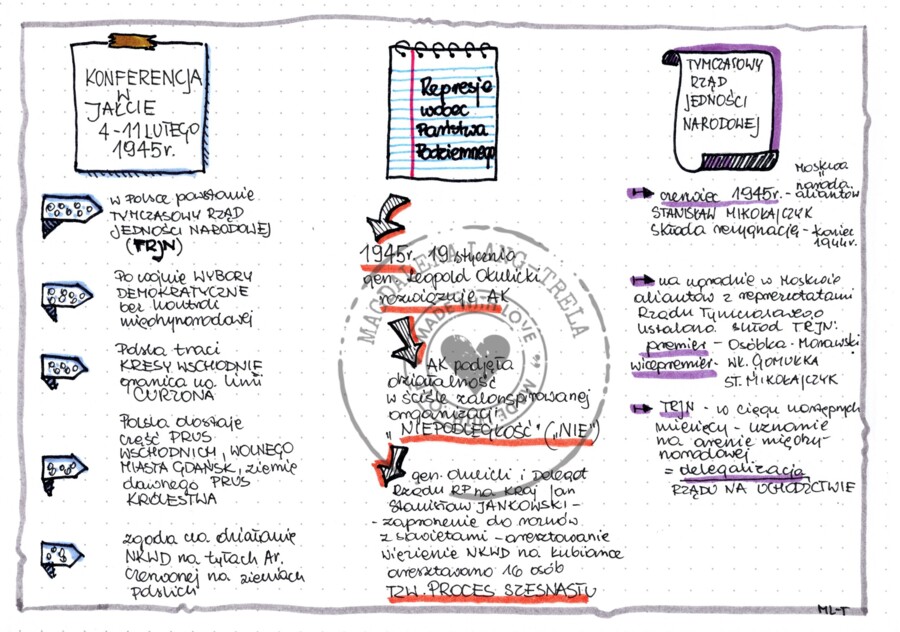 KONFERENCJA
W
JAŁCIE
4-11 LUTEGO
1945r.
w Polsce powstanie
TYMCZASOWY RZĄD
JEDNOŚCI NARODOWEJ
(TRJN)
Po wojnie WYBORY
DEMOKRATYCZNE
bez kontroli
międzynarodowej
Polska traci
KRESY WSCHODNIE
granica wg. linii
CURZONA
Polska dostaje
część PRUS
WSCHODNICH, WOLNEGO
MIASTA GDAŃSK, ziemie
dawnego PRUS
KRÓLESTWA
zgoda na działanie
NKWD na tyłach Ar.
czerwonej na ziemiach
polskich
Represje
wobec
Państwa
Podziemnego
1945r. 19 stycznia
gen. Leopold Okulicki
rozwiązuje AK
AK podjęła
działalność
w ściśle zakonspirowanej
organizacji
"NIEPODLEGŁOŚĆ" ("NIE")
gen. Okulicki i Delegat
Rządu RP na Kraj Jan
Stanisław JANKOWSKI -
- zaproszenie do rozmów
z sowietami - aresztowanie
więzienie NKWD na Łubiance
aresztowano 16 osób
TZW. PROCES SZESNASTU
TYMCZASOWY
RZĄD
JEDNOŚCI
NARODOWEJ
czerwiec 1945r. - Moskwa
"narada"
aliantów
STANISŁAW MIKOŁAJCZYK
składa rezygnację - koniec
1944r.
na naradzie w Moskwie
aliantów z reprezentatami
Rządu Tymczasowego
ustalono skład TRJN:
premier - Osóbka-Morawski
wicepremier - Wł. GOMUŁKA
ST. MIKOŁAJCZYK
TRJN - w ciągu następnych
miesięcy - uznanie
na arenie między-
narodowej
= delegalizacja
RZĄDU NA UCHODŹCTWIE
MAGDALENA LANG-TRELA
MADE WITH LOVE
ML-T